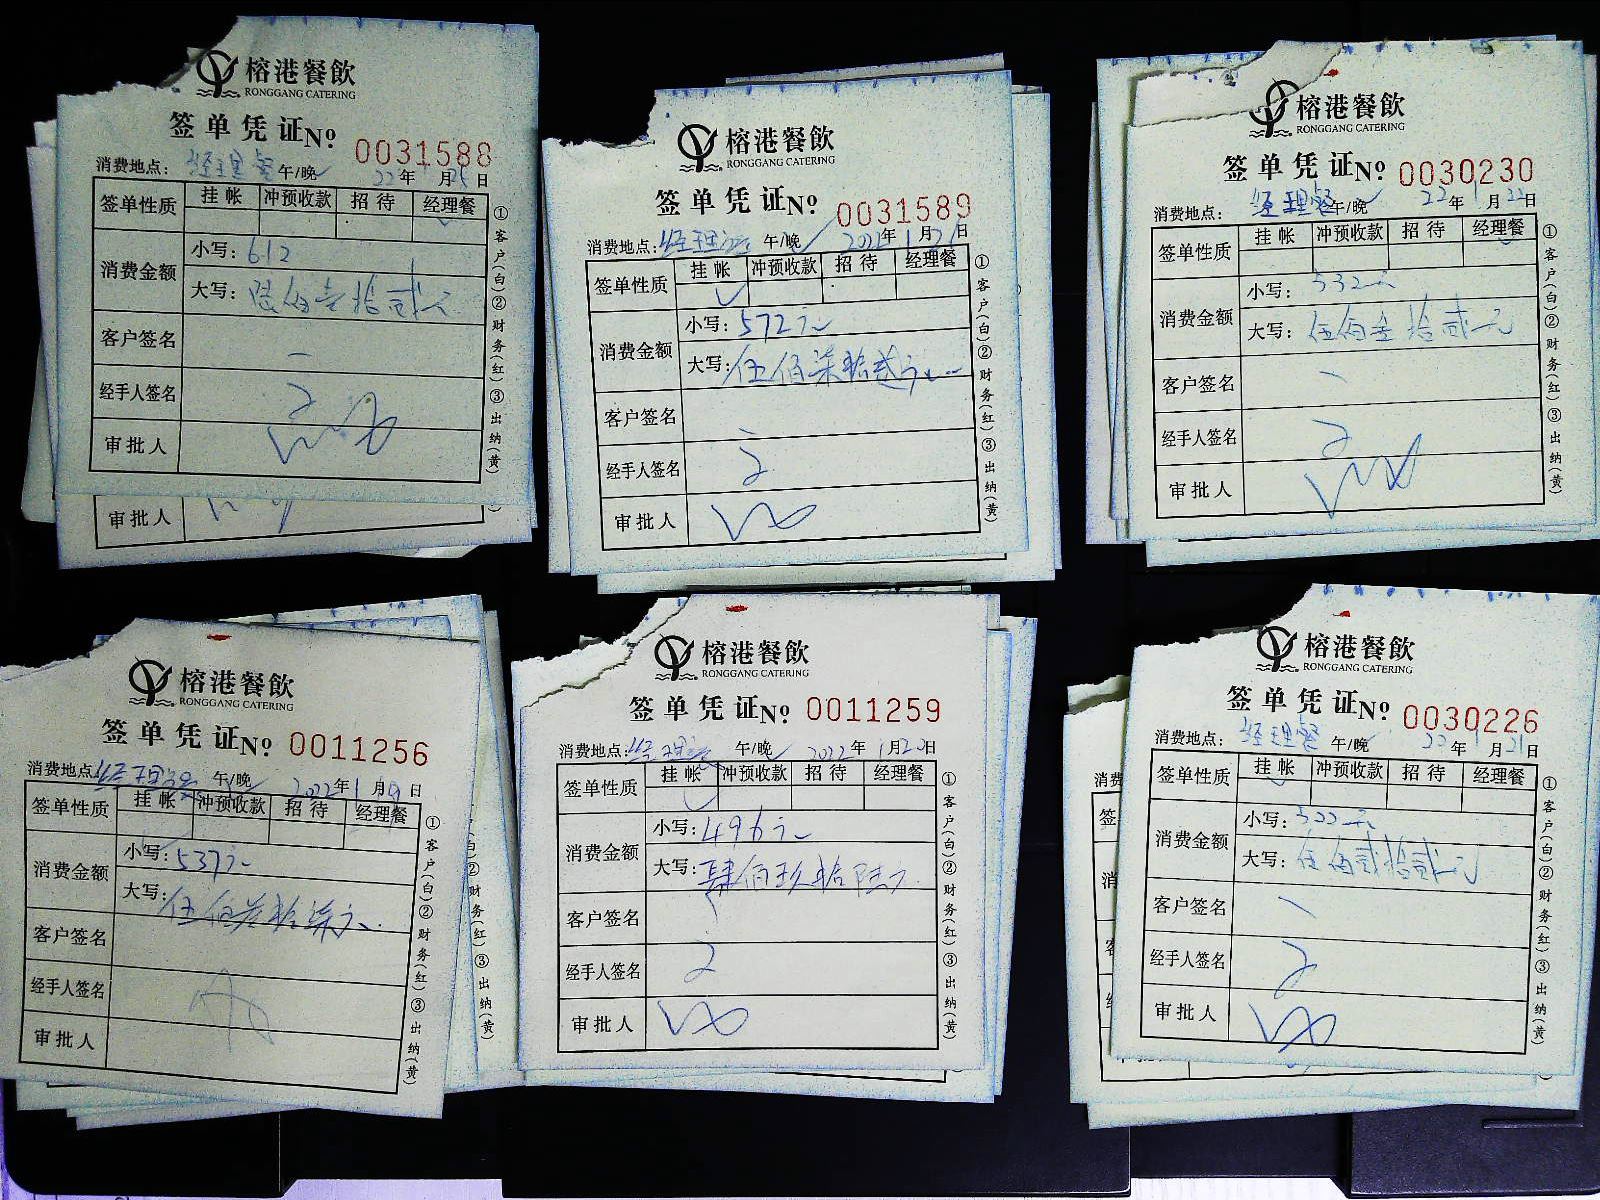 榕港餐飲
RONGGANG CATERING
签单凭证№ 0031588
消费地点: 经理餐 午/晚 22年 月 日
签单性质 挂帐 冲预收款 招待 经理餐
消费金额 小写: 612
大写: 陆佰壹拾贰元
客户签名
经手人签名
审批人
①客户(白)②财务(红)③出纳(黄)
审批人
榕港餐飲
RONGGANG CATERING
签单凭证№ 0031589
消费地点: 经理 午/晚 2022年1月 日
签单性质 挂帐 冲预收款 招待 经理餐
消费金额 小写: 572元
大写: 伍佰柒拾贰元
客户签名
经手人签名
审批人
①客户(白)②财务(红)③出纳(黄)
榕港餐飲
RONGGANG CATERING
签单凭证№ 0030230
消费地点: 经理餐 午/晚 22年1月22日
签单性质 挂帐 冲预收款 招待 经理餐
消费金额 小写: 元
大写: 伍佰 拾贰元
客户签名
经手人签名
审批人
①客户(白)②财务(红)③出纳(黄)
榕港餐飲
RONGGANG CATERING
签单凭证№ 0011256
消费地点: 经理 午/晚 2022年1月19日
签单性质 挂帐 冲预收款 招待 经理餐
消费金额 小写: 537元
大写: 伍佰叁拾柒元
客户签名
经手人签名
审批人
①客户(白)②财务(红)③出纳(黄)
白)②财务(红)③出纳(黄)
榕港餐飲
RONGGANG CATERING
签单凭证№ 0011259
消费地点: 经理 午/晚 2022年1月20日
签单性质 挂帐 冲预收款 招待 经理餐
消费金额 小写: 496元
大写: 肆佰玖拾陆元
客户签名
经手人签名
审批人
①客户(白)②财务(红)③出纳(黄)
榕港餐飲
RONGGANG CATERING
签单凭证№ 0030226
消费地点: 经理餐 午/晚 22年1月21日
签单性质 挂帐 冲预收款 招待 经理餐
消费金额 小写: 522元
大写: 伍佰贰拾贰元
客户签名
经手人签名
审批人
①客户(白)②财务(红)③出纳(黄)
消费
签
消